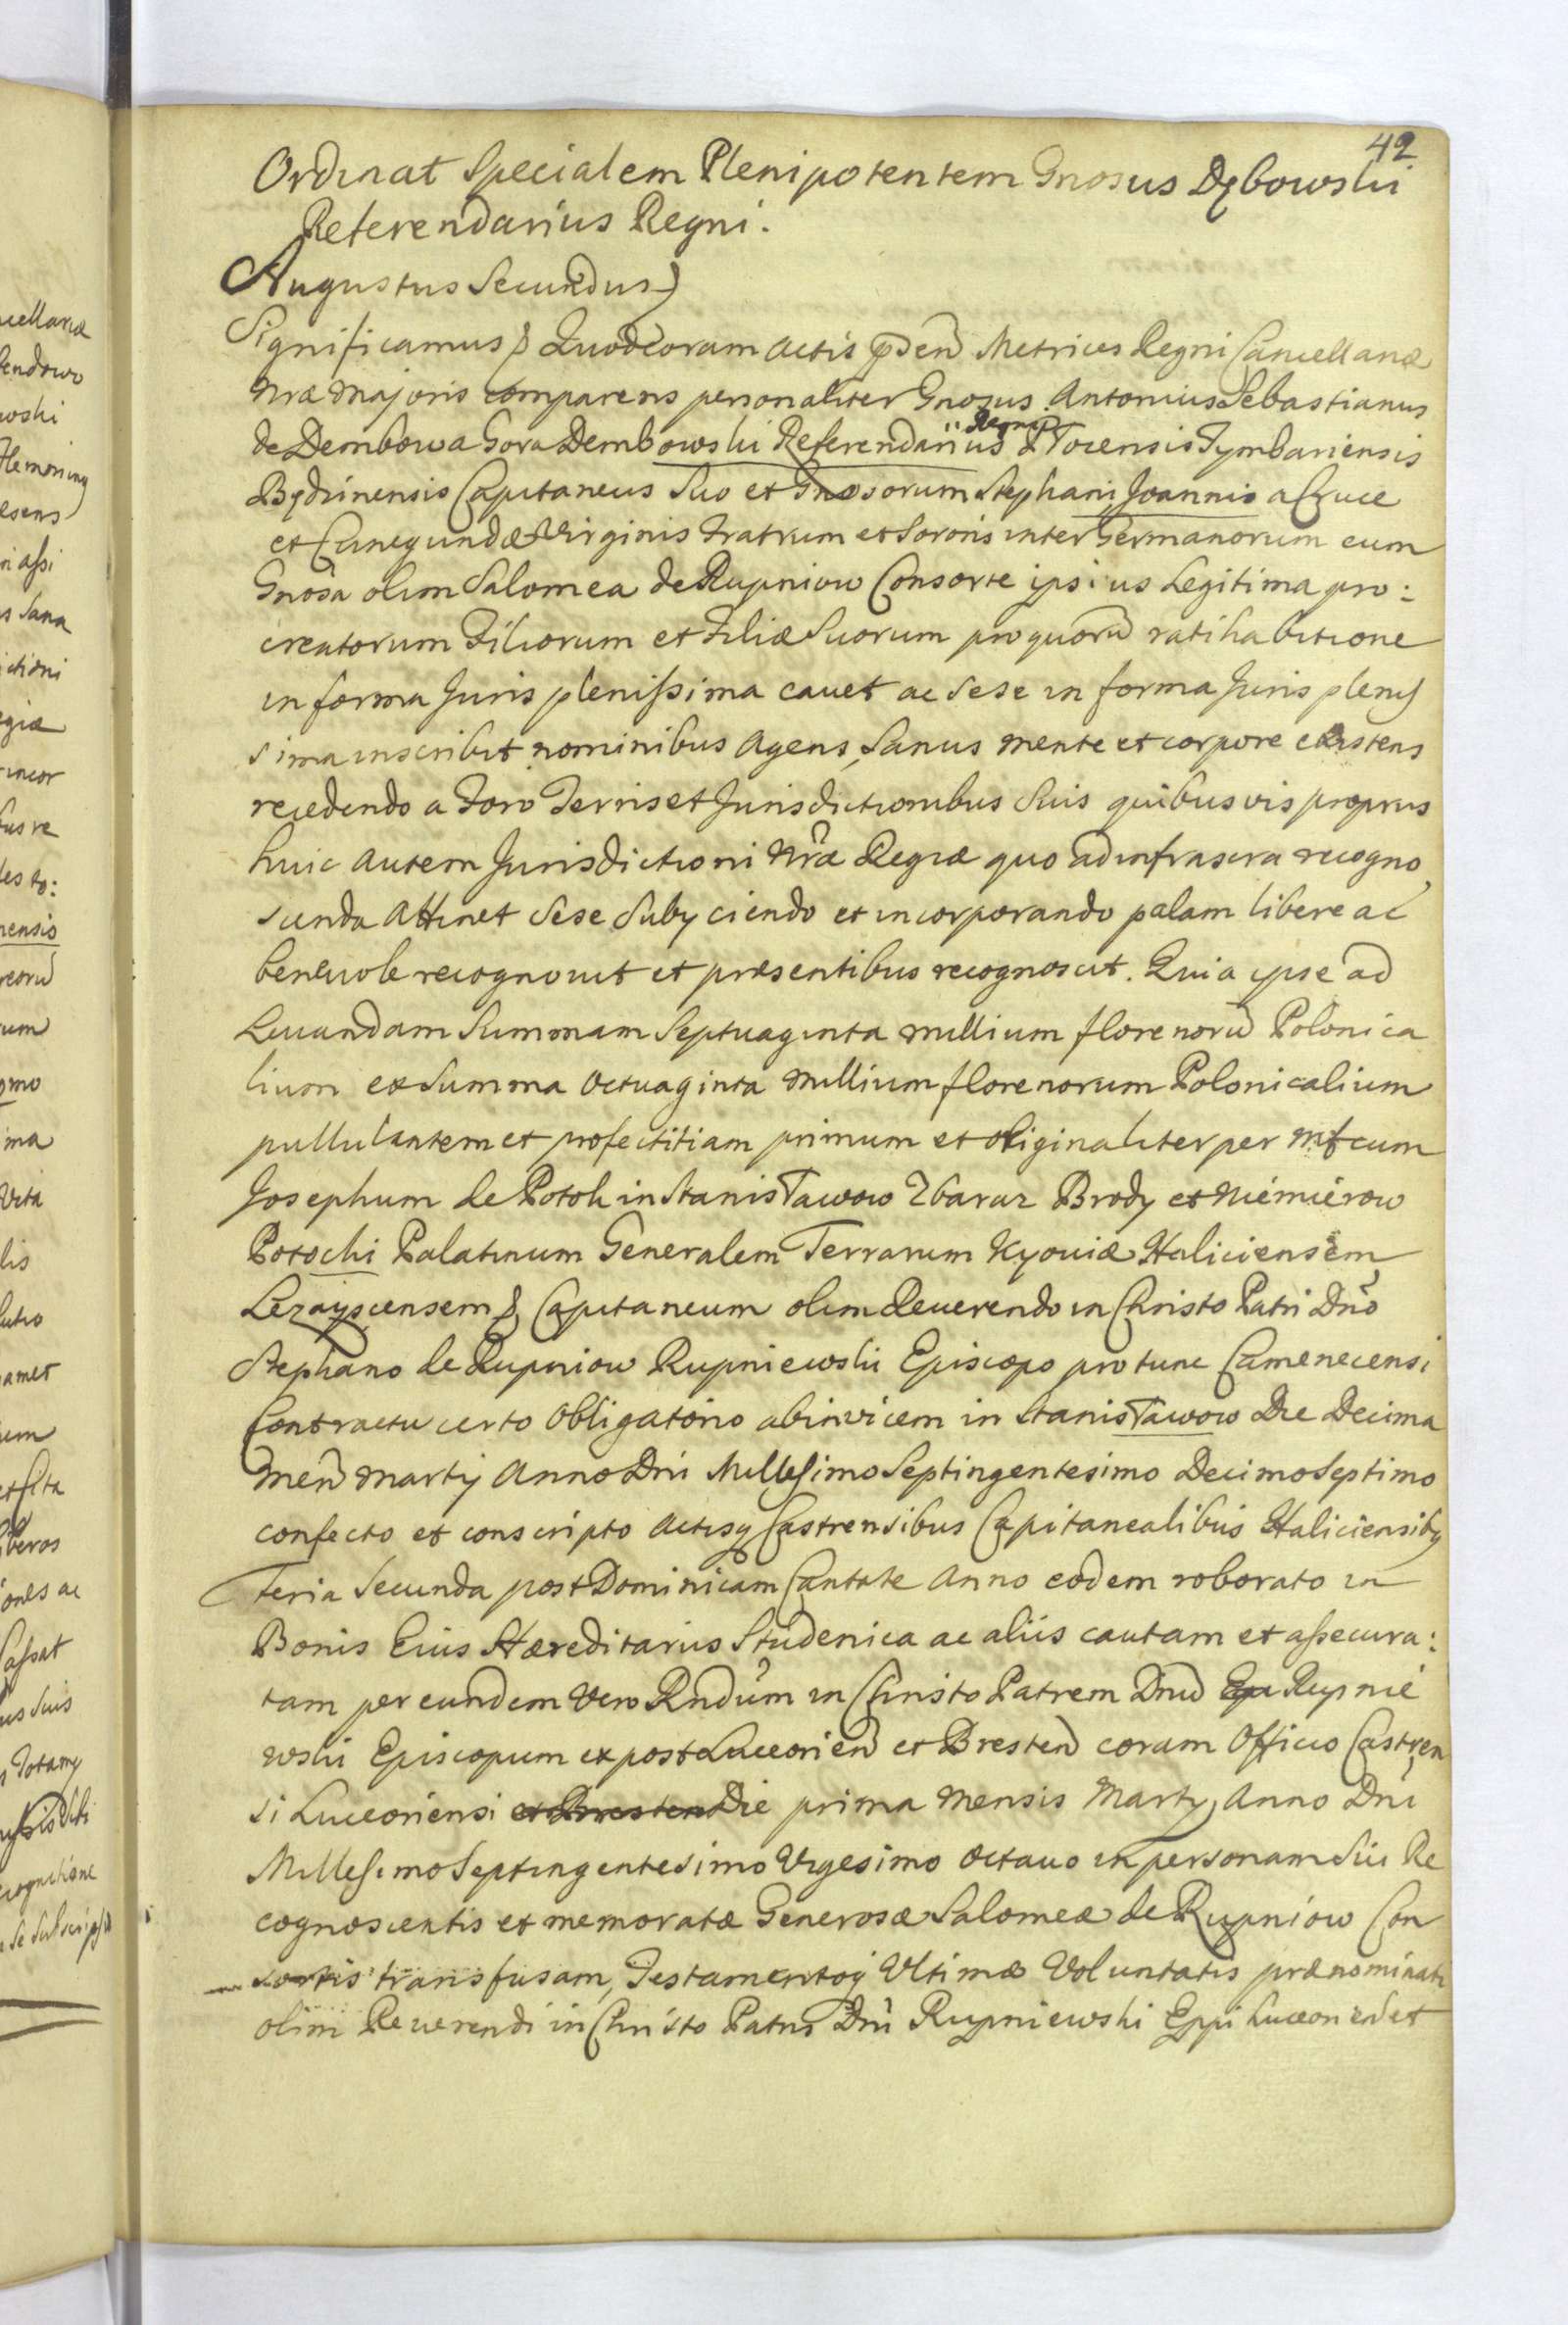 42
Ordinat Specialem Plenipotentem Gnosus Dębowski
Referendarius Regni.
Augustus Secundus
Significamus Quod coram Actis pñden Metrices Regni Cancellariæ
Nræ Majoris comparens personaliter Gnosus Antonius Sebastianus
Regni
de Dembowa Gora Dembowski Referendarius Płocensis Tymbariensis
Będzinensis Capitaneus Suo et Gnosorum Stephani Joannis a Cruce
et Cunegundæ Virginis Fratrum et Sororis inter Germanorum cum
Gnosa olim Salomea de Rupniow Consorte ipsius Legitima pro:
creatorum Filiorum et Filiæ Suorum pro quorũ ratihabitione
in forma Juris plenissima cauet ac Sese in forma Juris plenis
sima inscribit nominibus Agens, Sanus mente et corpore existens
recedendo a Foro Terris et Jurisdictionibus Suis quibusvis proprus
huic autem Jurisdictioni Nræ Regiæ quo ad infrascra recogno
scenda Attinet Sese Subyciendo et incorporando palam libere ac
beneuole recognouit et præsentibus recognoscit. Quia ipse ad
Leuandam Summam Septuaginta millium florenorũ Polonica
lium ex Summa Octuaginta Millium florenorum Polonicalium
pullulantem et profectitiam primum et originaliter per Mfcum
Josephum de Potok in Stanisławow Zbaraz Brody et Niemierow
Potocki Palatinum Generalem Terrarum Kyouiæ Haliciensem
Lezayscensem Capitaneum olim Reuerendo in Christo Patri Dño
Stephano de Rupniow Rupniewski Episcopo pro tunc Camenecensi
Contractu certo Obligatorio abinvicem in Stanisławow Die Decima
Men Martij Anno Dni Millesimo Septingentesimo Decimo Septimo
confecto et conscripto Actisq Castrensibus Capitanealibus Haliciensiby
Feria Secunda post Dominicam Cantate Anno eodem roborato in
Bonis Eius Hæreditarius Studenica ac aliis cautam et assecura:
tam per eundem Vero Rndum in Christo Patrem Dnũ Ep Rupnie
wski Episcopum expost Luceorien et Bresten coram Officio Castren
si Luceoriensi et Bresten Die prima Mensis Marty Anno Dni
Millesimo Septingentesimo Vigesimo Octauo in personam Sui Re
cognoscentis et memoratæ Generosæ Salomeæ de Rupniow Con
sortis transfusam, Testamentoq Ultimæ Voluntatis prænominati
olim Reuerendi in Christo Patris Dni Rupniewski Eppi Luceorien et